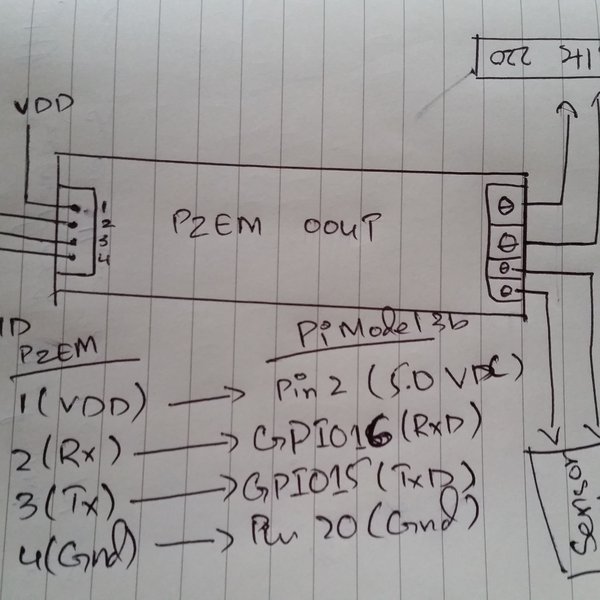 220
VDD
1
2
3
4
PZEM 004T
PZEM
Pi Model 3b
1(VDD) → Pin 2 (5.0 VDC)
2(Rx) → GPIO16(RxD)
3(Tx) → GPIO15(TxD)
4(Gnd) → Pin 20(Gnd)
Sensor